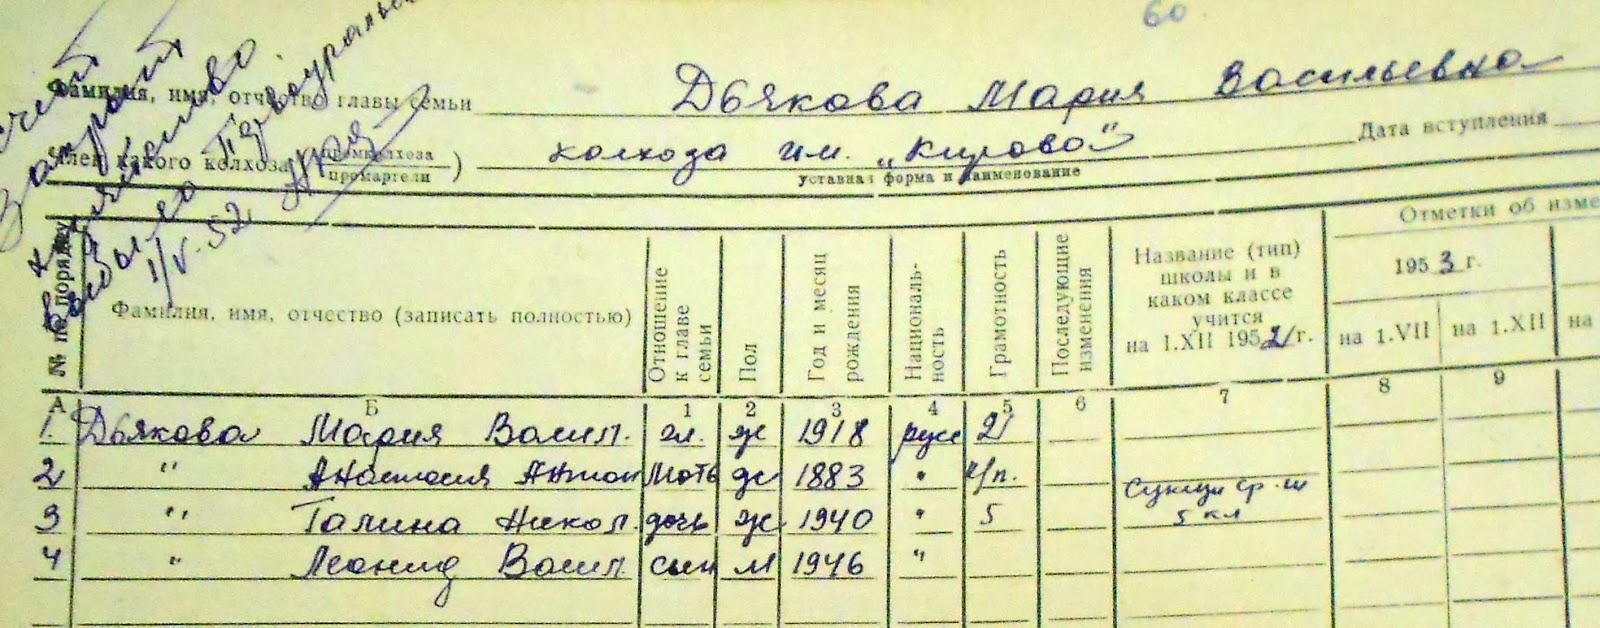 60
Фамилия, имя, отчество главы семьи Дьякова Мария Васильевна
Член какого колхоза (промколхоза промартели) колхоза им. „Кирова" Дата вступления
уставная форма и наименование
1/V-52
№ по порядку
Фамилия, имя, отчество (записать полностью)
Отношение к главе семьи
Пол
Год и месяц рождения
Националь-ность
Грамотность
Последующие изменения
Название (тип) школы и в каком классе учится на 1.XII 1952 г.
Отметки об изме
1953 г.
на 1.VII на 1.XII на
А Б 1 2 3 4 5 6 7 8 9
1. Дьякова Мария Васил. гл. ж 1918 русс 2
2 " Анастасия Антон мать ж 1883 " н/п.
3 " Галина Никол. дочь ж 1940 " 5 ср. ш 5 кл
4 " Леонид Васил. сын м 1946 "